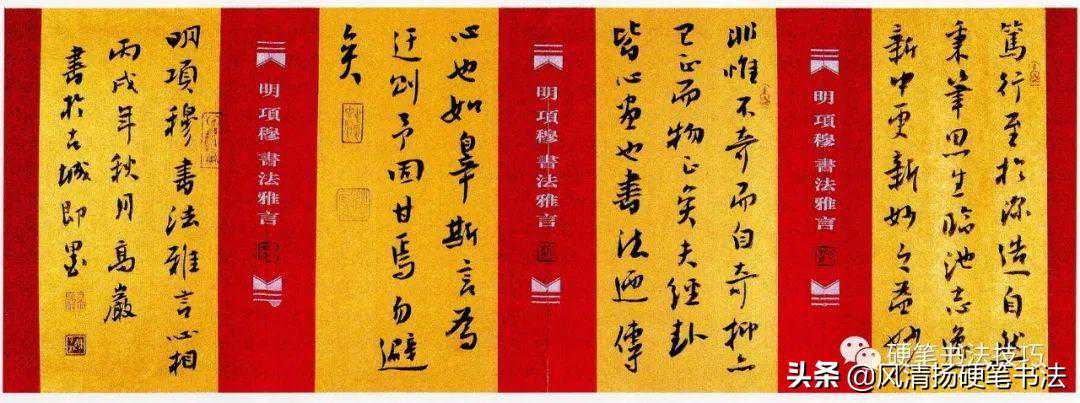 篤行至於深造自然
秉筆思生臨池志逸
新中更新妙之益妙
明項穆書法雅言
非惟不奇而自奇抑亦
己正而物正矣夫經卦
皆心畫也書法迺傳
明項穆書法雅言
心也如辠斯言為
迂則予固甘焉勿避
矣
明項穆書法雅言
明項穆書法雅言心相
丙戌年秋月高巖
書於古城即墨
硬笔书法技巧
头条 @风清扬硬笔书法